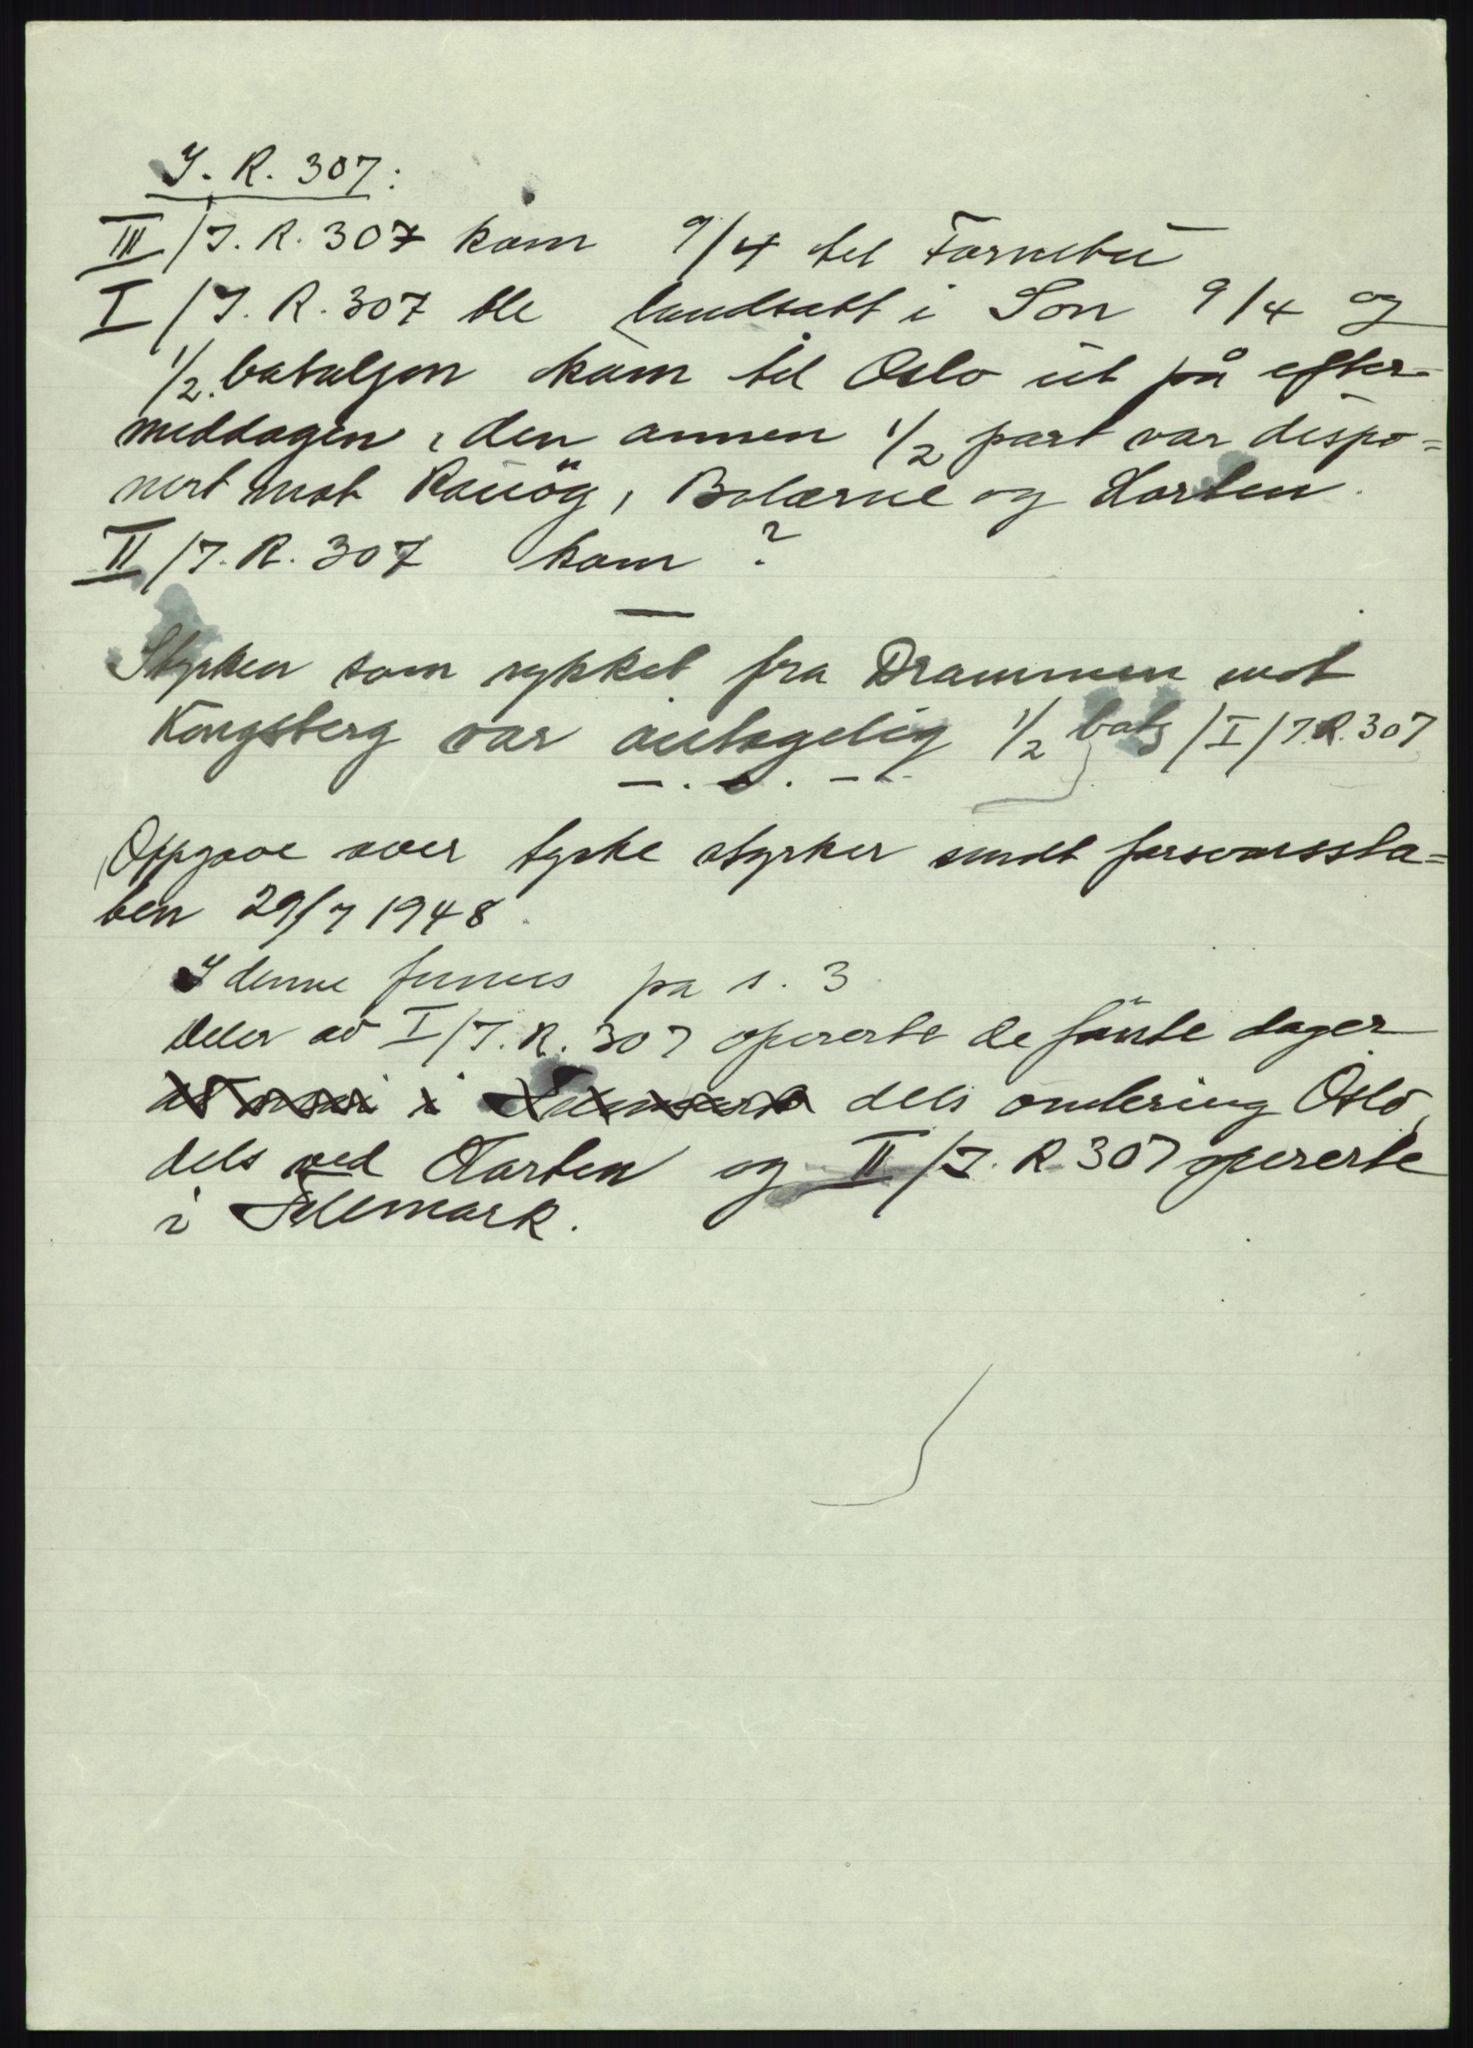 I. R. 307:
III/I. R. 307 kom 9/4 til Fornebu
I/I. R. 307 ble landsatt i Son 9/4 og
1/2 bataljon kom til Oslo ut på efter-
middagen, den annen 1/2 part var dispo=
nert mot Rauöy, Bolærne og Horten.
II/I. R. 307 kom ?
Styrken som rykket fra Drammen mot
Kongsberg var antagelig 1/2 batj/I/I.R.307
Oppgave over tyske styrker sendt forsvarssta=
ben 29/7 1948.
I denne finnes på s. 3
deler av I/I. R. 307 opererte de første dager
i dels omkring Oslo,
dels ved Horten og II/I. R 307 opererte
i Telemark.